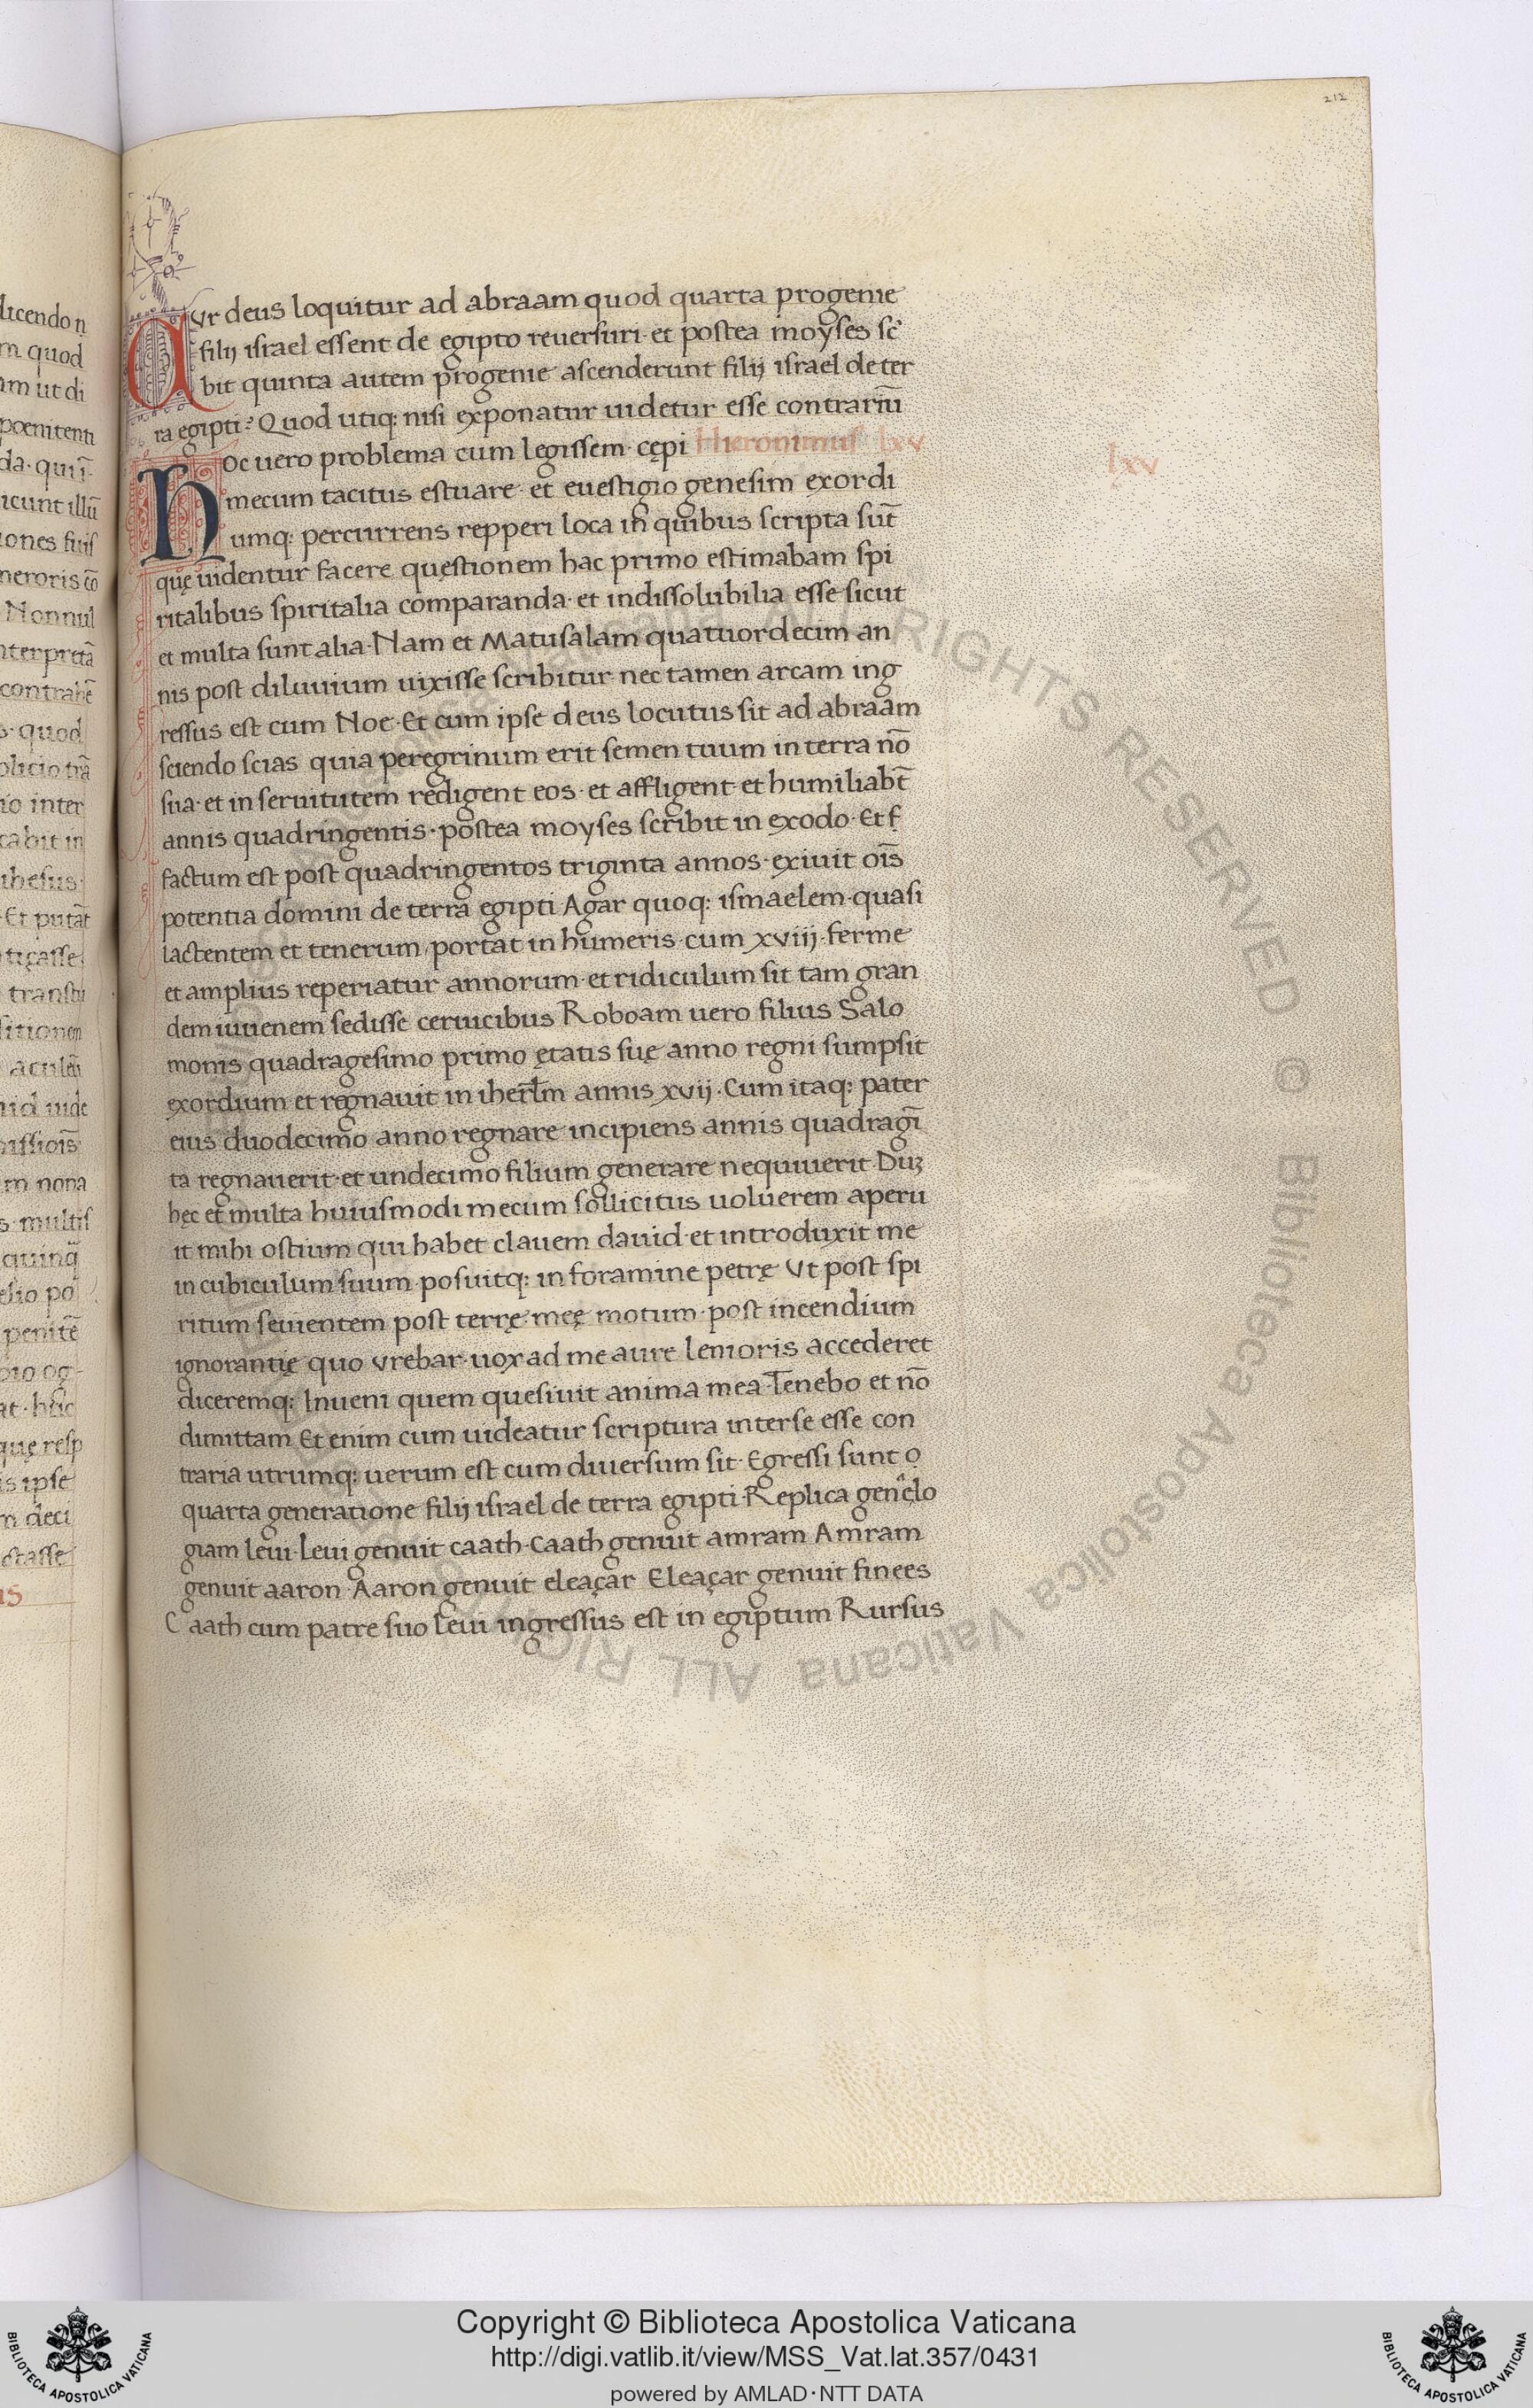 212
Cur deus loquitur ad abraam quod quarta progenie
filij israel essent de egipto reuersuri· et postea moyses sc̃
bit quinta autem progenie ascenderunt filij israel de ter
ra egipti? Quod utiq: nisi exponatur uidetur esse contrariũ
Hoc uero problema cum legissem· cępi Hieronimus lxv
lxv
mecum tacitus estuare· et euestigio genesim exordi
umq: percurrens repperi loca in quibus scripta sũt
quę uidentur facere quęstionem hac primo estimabam spi
ritalibus spiritalia comparanda· et indissolubilia esse sicut
et multa sunt alia· Nam et Matusalam quatuordecim an
nis post diluuium uixisse scribitur nec tamen arcam ing
ressus est cum Noe· Et cum ipse deus locutus sit ad abraam
sciendo scias quia peregrinum erit semen tuum in terra nõ
sua· et in seruitutem redigent eos· et affligent et humiliabt̃
annis quadringentis· postea moyses scribit in exodo· Et f
factum est post quadringentos triginta annos· exiuit oĩs
potentia domini de terra egipti Agar quoq: ismaelem· quasi
lactentem et tenerum portat in humeris· cum xviij· ferme
et amplius reperiatur annorum· et ridiculum sit tam gran
dem iuuenem sedisse ceruicibus Roboam uero filius Salo
monis quadragesimo primo ętatis suę anno regni sumpsit
exordium et regnauit in iherl̃m annis xvij· Cum itaq: pater
eius duodecimo anno regnare incipiens annis quadragĩ
ta regnauerit· et undecimo filium generare nequiuerit Duʒ
hęc et multa huiusmodi mecum sollicitus uoluerem aperu
it mihi ostium qui habet clauem dauid· et introduxit me
in cubiculum suum· posuitq: in foramine petrę Vt post spi
ritum seuientem post terrę męę motum· post incendium
ignorantię quo vrebar· uox ad me aure lenioris accederet
diceremq: Inueni quem quesiuit anima mea· Tenebo et nõ
dimittam Et enim cum uideatur scriptura inter se esse con
traria utrumq: uerum est cum diuersum sit· Egressi sunt o
quarta generatione filij israel de terra egipti· Replica gen̂elo
giam leui· Leui genuit caath· Caath genuit amram Amram
genuit aaron· Aaron genuit eleaçar Eleaçar genuit finees
Caath cum patre suo leui ingressus est in egiptum Rursus
Copyright © Biblioteca Apostolica Vaticana
http://digi.vatlib.it/view/MSS_Vat.lat.357/0431
powered by AMLAD·NTT DATA
BIBLIOTECA APOSTOLICA VATICANA
BIBLIOTECA APOSTOLICA VATICANA